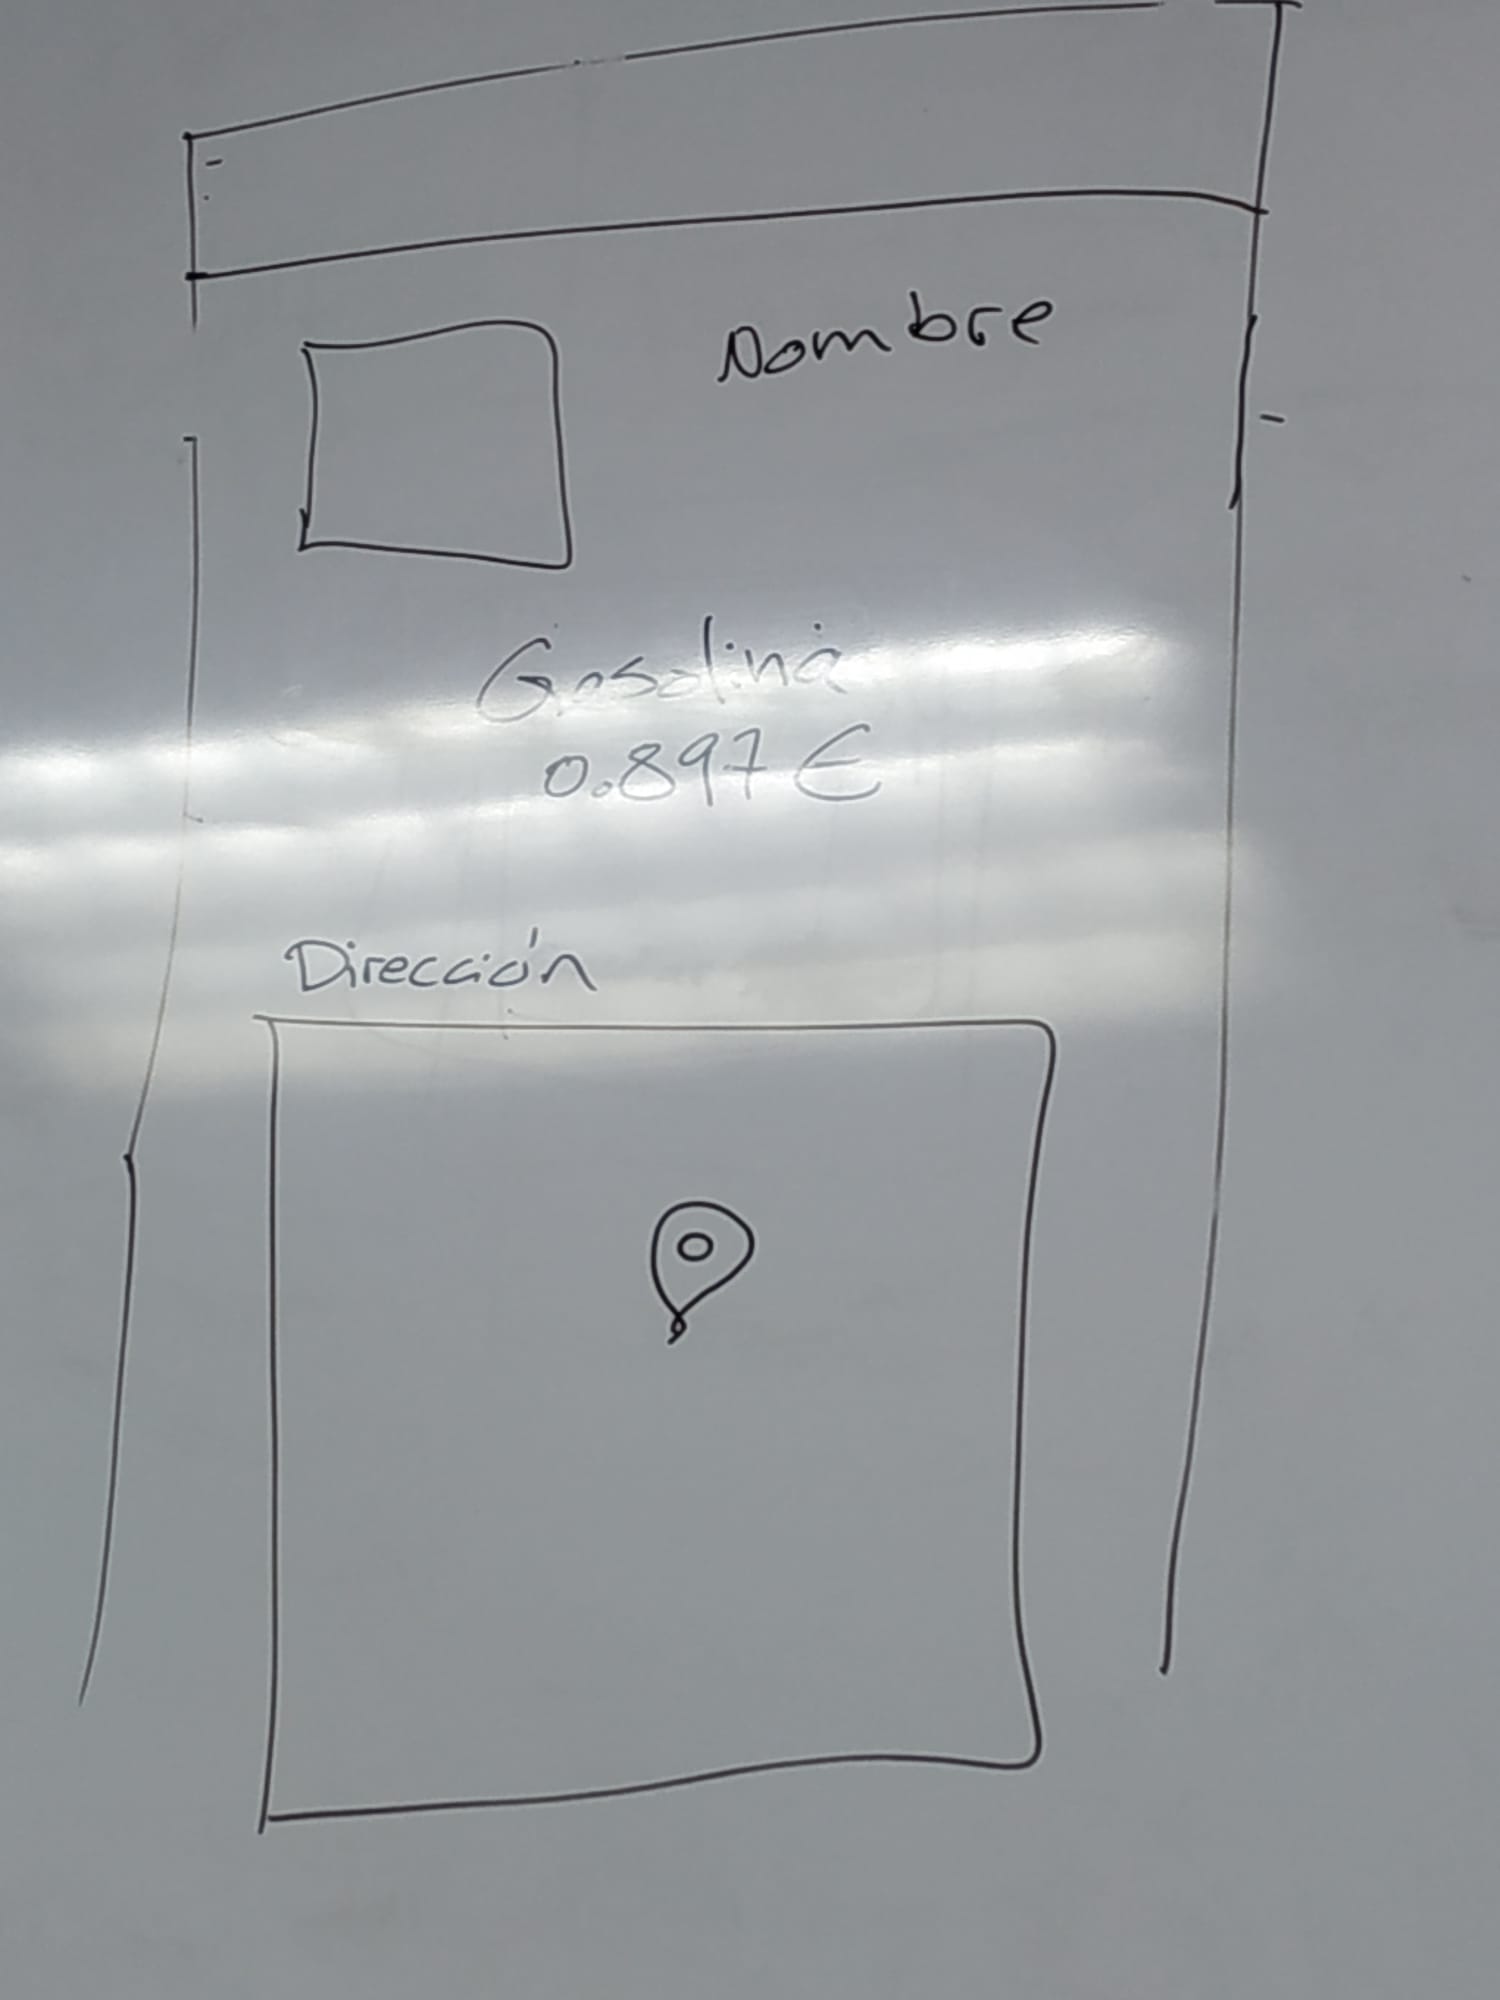 Nombre
Gasolina
0.897€
Dirección